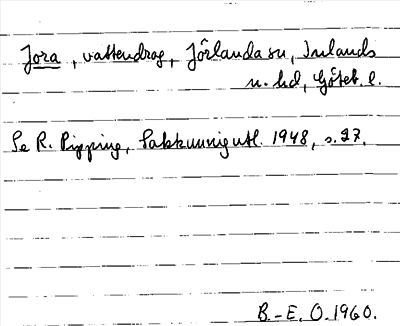 Jora, vattendrag, Jörlanda sn, Inlands
n. hd, Göteb. l.
Se R. Pipping, Sakkunnigutl. 1948, s. 27.
B.-E. O. 1960.